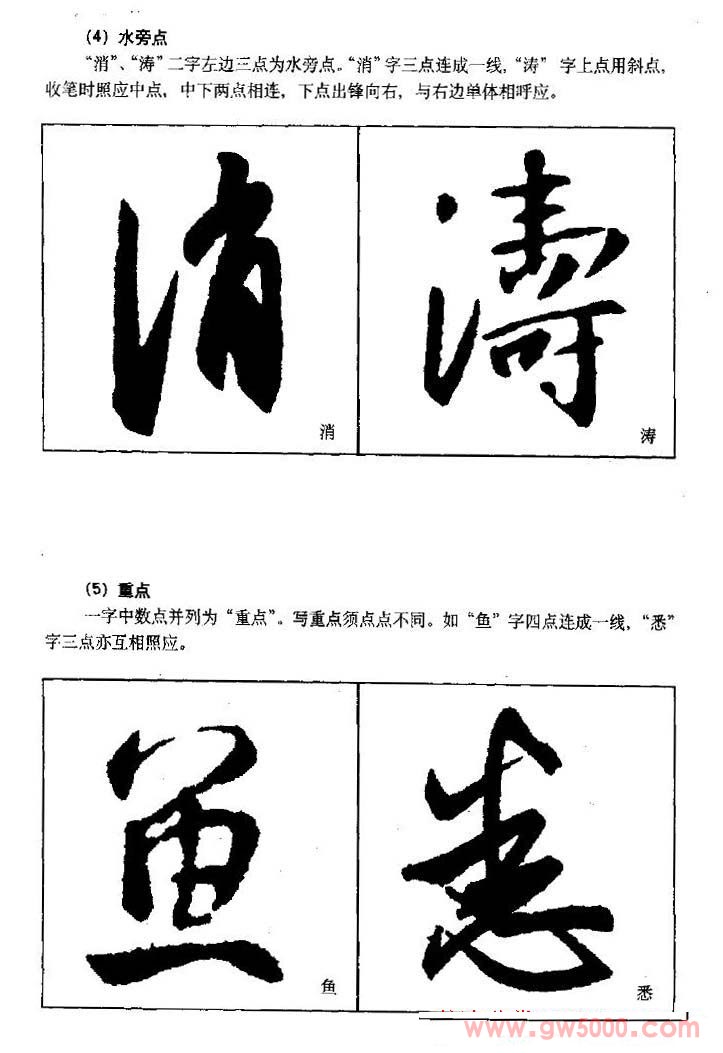 (4) 水旁点
“消”、“涛”二字左边三点为水旁点。“消”字三点连成一线，“涛” 字上点用斜点，
收笔时照应中点，中下两点相连，下点出锋向右，与右边单体相呼应。
消 涛
消 涛
(5) 重点
一字中数点并列为“重点”。写重点须点点不同。如“鱼”字四点连成一线，“悉”
字三点亦互相照应。
鱼 悉
鱼 悉
www.gw5000.com